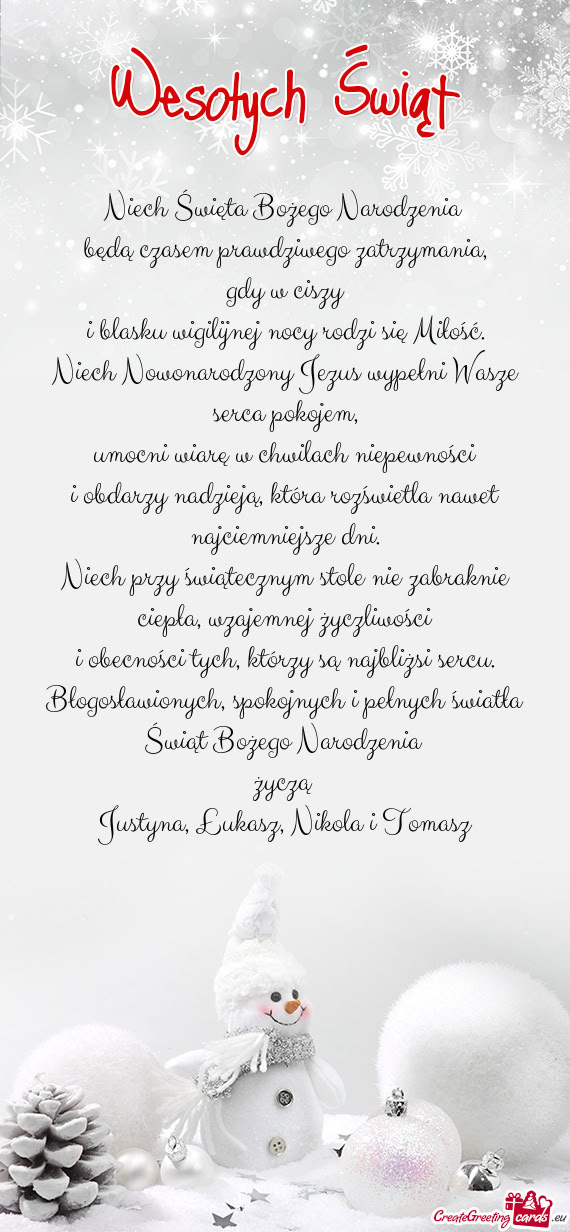 Wesołych Świąt
Niech Święta Bożego Narodzenia
będą czasem prawdziwego zatrzymania,
gdy w ciszy
i blasku wigilijnej nocy rodzi się Miłość.
Niech Nowonarodzony Jezus wypełni Wasze
serca pokojem,
umocni wiarę w chwilach niepewności
i obdarzy nadzieją, która rozświetla nawet
najciemniejsze dni.
Niech przy świątecznym stole nie zabraknie
ciepła, wzajemnej życzliwości
i obecności tych, którzy są najbliżsi sercu.
Błogosławionych, spokojnych i pełnych światła
Świąt Bożego Narodzenia
życzą
Justyna, Łukasz, Nikola i Tomasz
CreateGreetingcards.eu